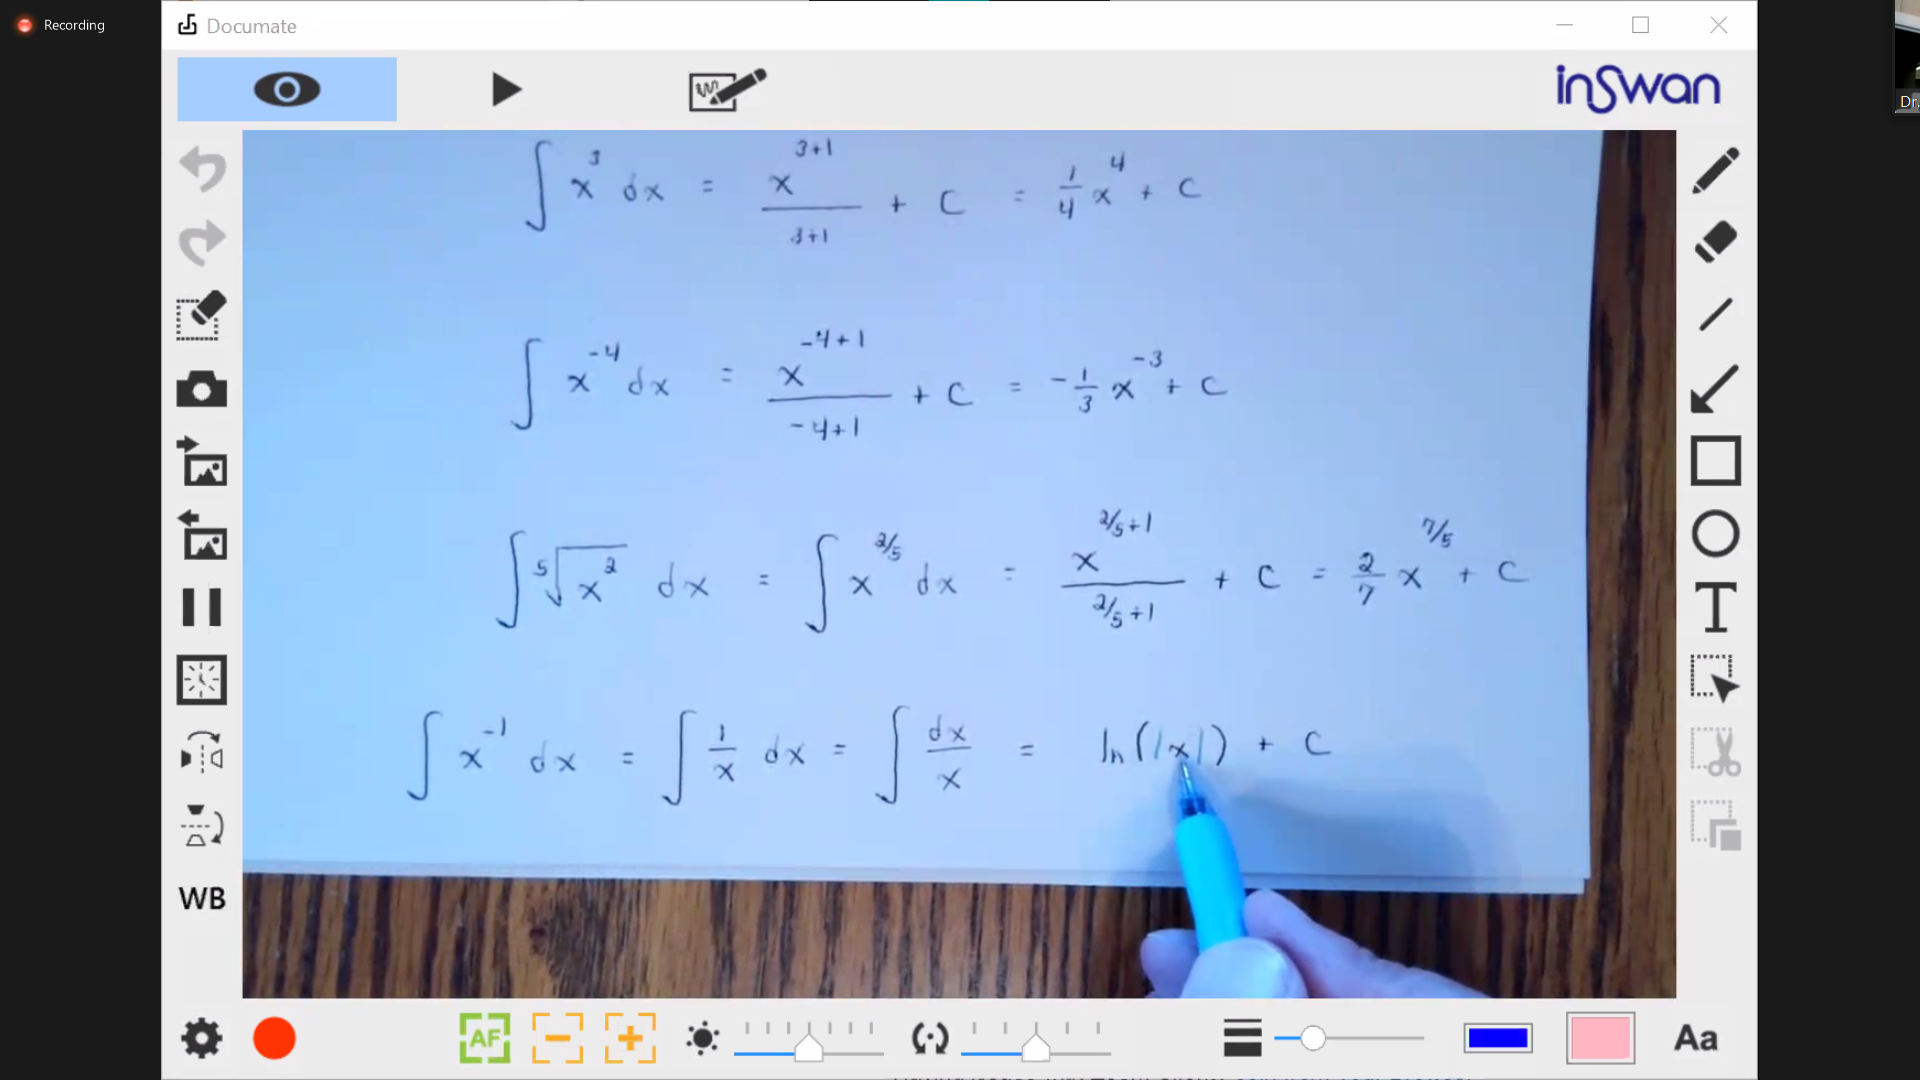 Recording
Documate
inSwan
∫ x³ dx = x³⁺¹ / 3+1 + C = 1/4 x⁴ + C
∫ x⁻⁴ dx = x⁻⁴⁺¹ / -4+1 + C = -1/3 x⁻³ + C
∫ ⁵√x² dx = ∫ x^2/5 dx = x^2/5+1 / 2/5+1 + C = 2/7 x^7/5 + C
∫ x⁻¹ dx = ∫ 1/x dx = ∫ dx/x = ln(|x|) + C
Dr.
T
WB
AF
Aa